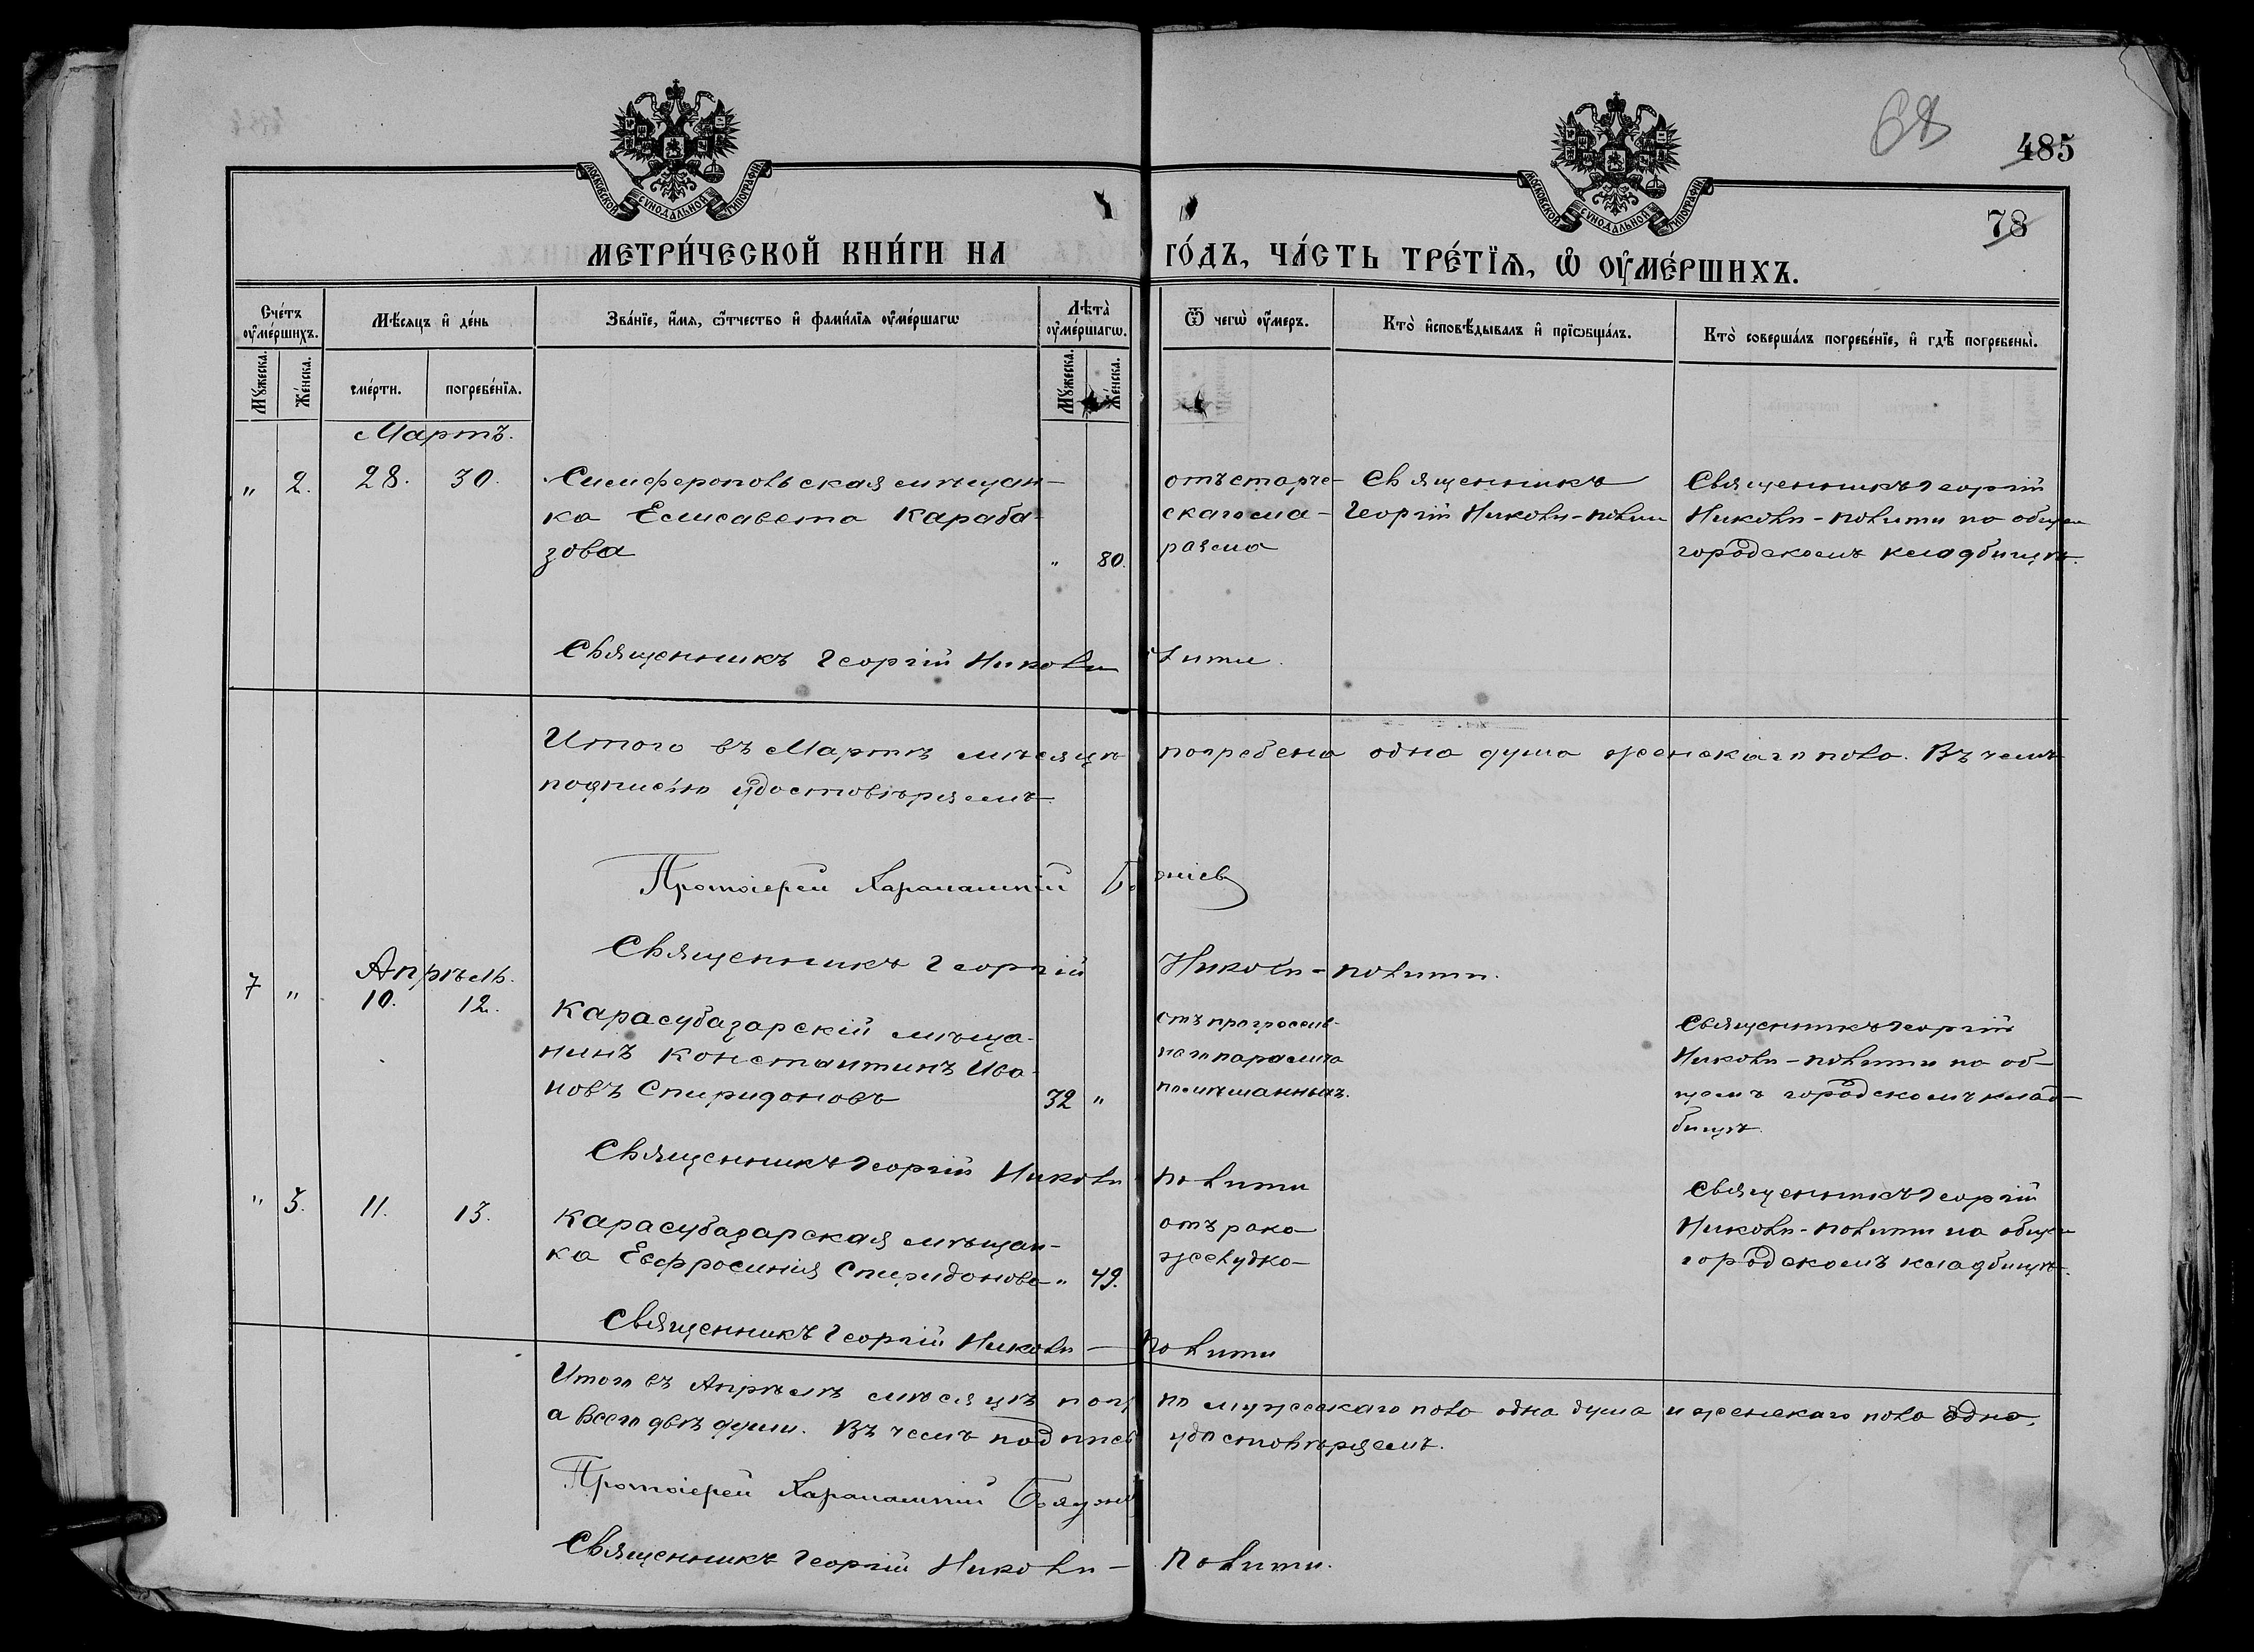 68
485
78
МОСКОВСКОЙ СѴНОДАЛЬНОЙ ТИПОГРАФІИ
МОСКОВСКОЙ СѴНОДАЛЬНОЙ ТИПОГРАФІИ
МЕТРИ́ЧЕСКОЙ КНИ́ГИ НА ГО́ДЪ, ЧА́СТЬ ТРЕ́ТЇѦ, Ѡ҆ ОУ҆МЕ́РШИХЪ.
Сче́тъ оу҆ме́ршихъ.
Мꙋ́жеска.
Же́нска.
Мѣ́сѧцъ и҆ де́нь
сме́рти.
погребе́нїѧ.
Зва́нїе, и҆́мѧ, ѻ҆́тчество и҆ фами́лїѧ оу҆ме́ршагѡ
Лѣта̀ оу҆ме́ршагѡ.
Мꙋ́жеска.
Же́нска.
Ѿ чегѡ̀ оу҆́меръ.
Кто̀ и҆сповѣ́дывалъ и҆ прїѡбща́лъ.
Кто̀ соверша́лъ погребе́нїе, и҆ гдѣ̀ погребены̀.
Мартъ.
" 2. 28. 30.
Симферопольская мѣщан-
ка Елисавета Караба-
зова " 80.
отъ старче-
скаго ма-
разма
Священникъ
Георгій Николи-
Священникъ Георгій
Николи-полити на общем
городскомъ кладбищѣ.
Священникъ Георгій Николи лити.
Итого въ Мартѣ мѣсяцѣ погребена одна душа женскаго пола. Въ чемъ
подписью удостовѣряемъ.
Протоіерей Харлампій
Священникъ Георгій Николи-полити.
Апрѣль.
7 " 10. 12.
Карасубазарскій мѣща-
нинъ Константинъ Ива-
новъ Спиридоновъ 32 "
отъ прогрессив-
наго паралича
помѣшанныхъ.
Священникъ Георгій
Николи-полити на об-
щемъ городскомъ клад-
бищѣ.
Священникъ Георгій Николи полити
" 3. 11. 13.
Карасубазарская мѣщан-
ка Евфросинія Спиридонова " 49.
отъ рака
желудка
Священникъ Георгій
Николи-полити на общем
городскомъ кладбищѣ.
Священникъ Георгій Николи — полити
Итого въ Апрѣлѣ мѣсяцѣ погр но мужескаго пола одна душа и женскаго пола одна,
а всего двѣ души. Въ чемъ подпись удостовѣряемъ.
Протоіерей Харлампій
Священникъ Георгій Николи — полити.